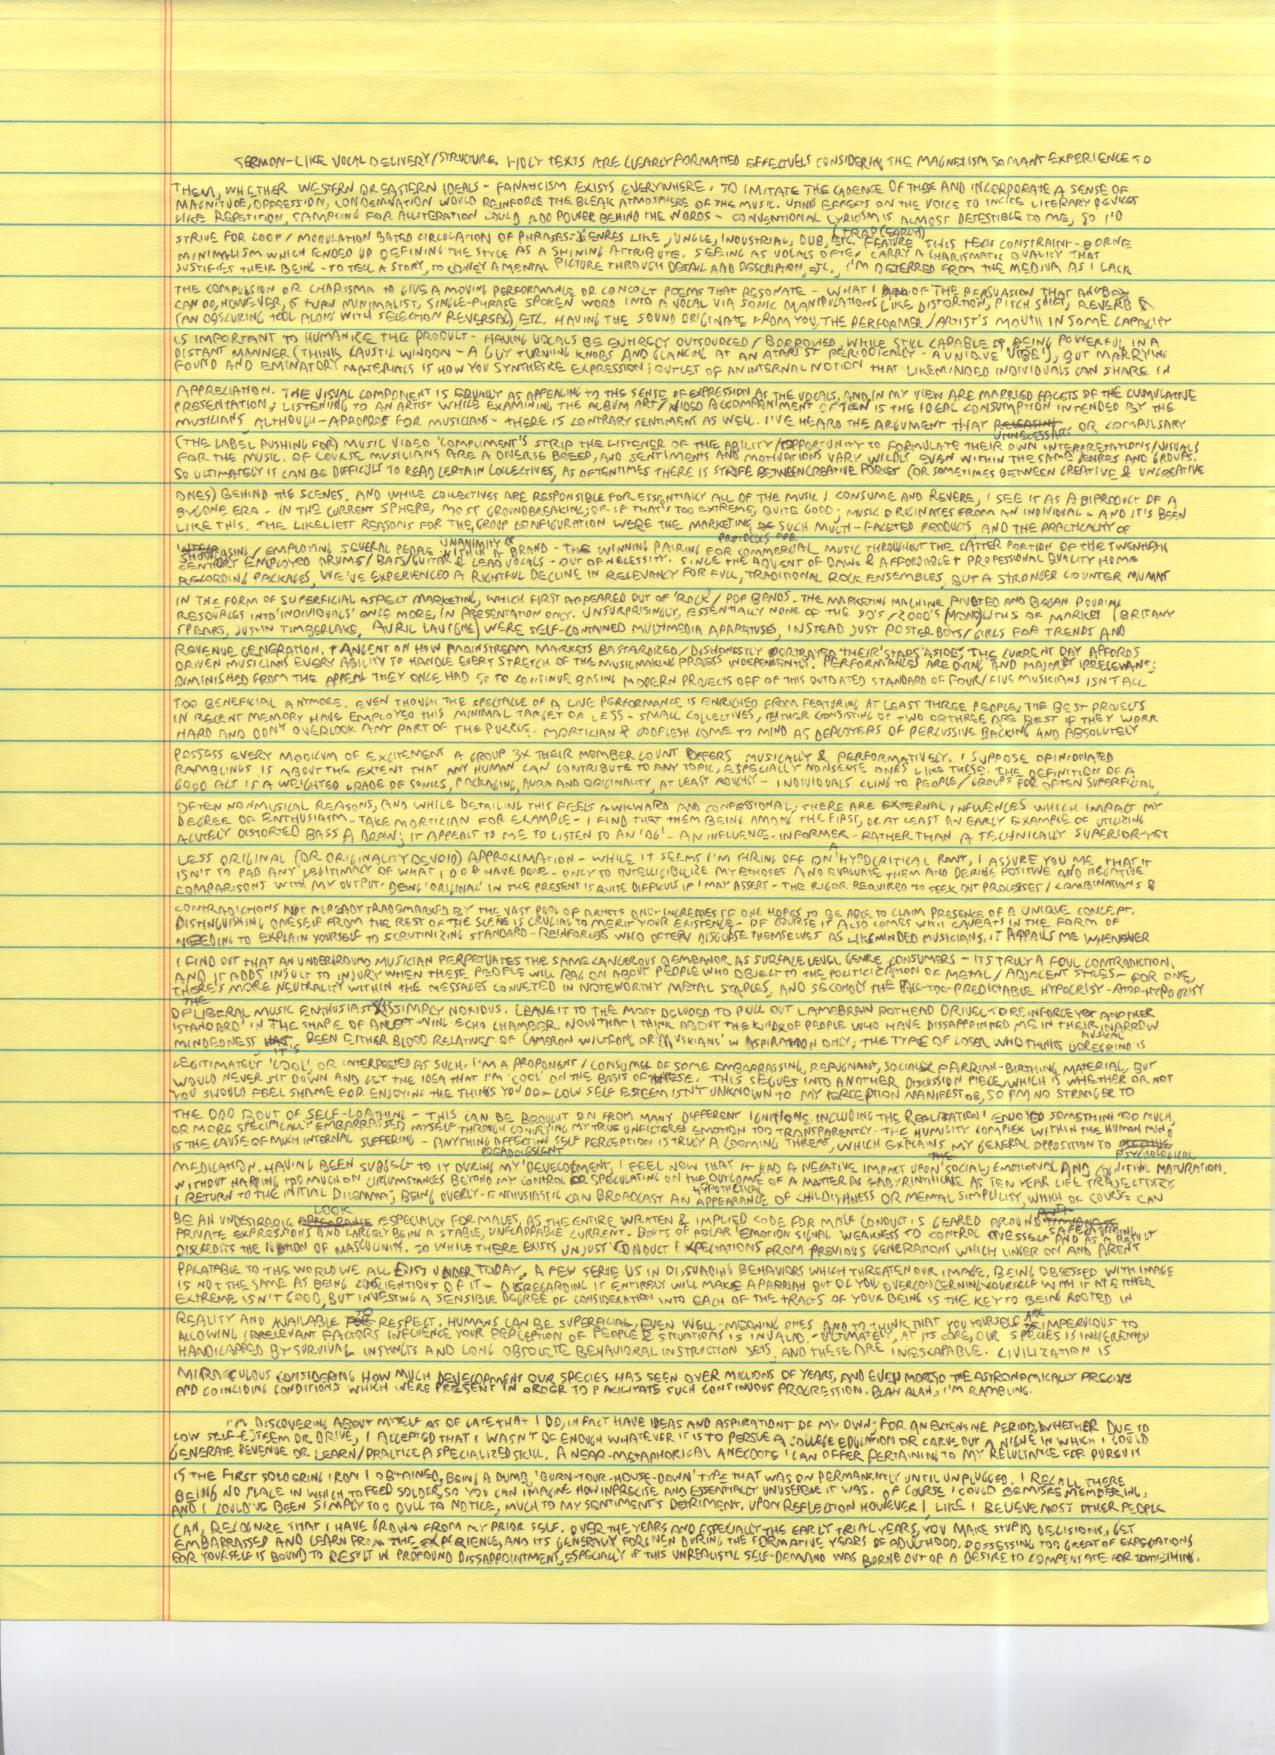 SERMON-LIKE VOCAL DELIVERY/STRUCTURE. HOLY TEXTS ARE CLEARLY FORMATTED EFFECTIVELY CONSIDERING THE MAGNETISM SO MANY EXPERIENCE TO
THEM, WHETHER WESTERN OR EASTERN IDEALS - FANATICISM EXISTS EVERYWHERE. TO IMITATE THE CADENCE OF THESE AND INCORPORATE A SENSE OF
MAGNITUDE, OPPRESSION, CONDEMNATION WOULD REINFORCE THE BLEAK ATMOSPHERE OF THE MUSIC. USING EFFECTS ON THE VOICE TO INCITE LITERARY DEVICES
LIKE REPETITION, SAMPLING FOR ALLITERATION COULD ADD POWER BEHIND THE WORDS - CONVENTIONAL LYRICISM IS ALMOST DETESTIBLE TO ME, SO I'D
STRIVE FOR LOOP/MODULATION BASED CIRCULATION OF PHRASES. GENRES LIKE JUNGLE, INDUSTRIAL, DUB, (TRAP (EARLY) ETC. FEATURE THIS TECH CONSTRAINT-BORNE
MINIMALISM WHICH ENDED UP DEFINING THE STYLE AS A SHINING ATTRIBUTE. SEEING AS VOCALS OFTEN CARRY A CHARISMATIC QUALITY THAT
JUSTIFIES THEIR BEING - TO TELL A STORY, TO CONVEY A MENTAL PICTURE THROUGH DETAIL AND DESCRIPTION, ETC., I'M DETERRED FROM THE MEDIUM AS I LACK
THE COMPULSION OR CHARISMA TO GIVE A MOVING PERFORMANCE OR CONCOCT POEMS THAT RESONATE - WHAT I OF THE PERSUASION THAT ANYBODY
CAN DO, HOWEVER, IS TURN MINIMALIST, SINGLE-PHRASE SPOKEN WORD INTO A VOCAL VIA SONIC MANIPULATIONS LIKE DISTORTION, PITCH SHIFT, REVERB
(AN OBSCURING TOOL ALONG WITH SELECTION REVERSAL) ETC. HAVING THE SOUND ORIGINATE FROM YOU, THE PERFORMER/ARTIST'S MOUTH IN SOME CAPACITY
IS IMPORTANT TO HUMANIZE THE PRODUCT - HAVING VOCALS BE ENTIRELY OUTSOURCED/BORROWED, WHILE STILL CAPABLE OF BEING POWERFUL IN A
DISTANT MANNER (THINK CAUSTIC WINDOW - A GUY TURNING KNOBS AND GLANCING AT AN ATARI ST PERIODICALLY - A UNIQUE 'VIBE'), BUT MARRYING
FOUND AND EMINATORY MATERIALS IS HOW YOU SYNTHESIZE EXPRESSION; OUTLET OF AN INTERNAL NOTION THAT LIKEMINDED INDIVIDUALS CAN SHARE IN
APPRECIATION. THE VISUAL COMPONENT IS EQUALLY AS APPEALING TO THE SENSE OF EXPRESSION AS THE VOCALS, AND IN MY VIEW ARE MARRIED FACETS OF THE CUMULATIVE
PRESENTATION; LISTENING TO AN ARTIST WHILE EXAMINING THE ALBUM ART/VIDEO ACCOMPANIMENT OFTEN IS THE IDEAL CONSUMPTION INTENDED BY THE
MUSICIANS, ALTHOUGH - APROPOS FOR MUSICIANS - THERE IS CONTRARY SENTIMENT AS WELL. I'VE HEARD THE ARGUMENT THAT UNNECESSARY OR COMPULSARY
(THE LABEL PUSHING FOR) MUSIC VIDEO 'COMPLIMENT'S STRIP THE LISTENER OF THE ABILITY/OPPORTUNITY TO FORMULATE THEIR OWN INTERPRETATIONS/VISUALS
FOR THE MUSIC. OF COURSE MUSICIANS ARE A DIVERSE BREED, AND SENTIMENTS AND MOTIVATIONS VARY WILDLY EVEN WITHIN THE SAME GENRES AND GROUPS.
SO ULTIMATELY IT CAN BE DIFFICULT TO READ CERTAIN COLLECTIVES, AS OFTENTIMES THERE IS STRIFE BETWEEN CREATIVE FORCES (OR SOMETIMES BETWEEN CREATIVE & UNCREATIVE
ONES) BEHIND THE SCENES. AND WHILE COLLECTIVES ARE RESPONSIBLE FOR ESSENTIALLY ALL OF THE MUSIC I CONSUME AND REVERE, I SEE IT AS A BIPRODUCT OF A
BYGONE ERA - IN THE CURRENT SPHERE, MOST GROUNDBREAKING, OR IF THAT'S TOO EXTREME, QUITE GOOD; MUSIC ORIGINATES FROM AN INDIVIDUAL - AND IT'S BEEN
LIKE THIS. THE LIKELIEST REASONS FOR THE GROUP CONFIGURATION WERE THE MARKETING OF SUCH MULTI-FACETED PRODUCTS AND THE PRACTICALITY OF
SHOWCASING/EMPLOYING SEVERAL PEOPLE UNANIMITY OF WITHIN A BRAND - THE WINNING PAIRING PROTOCOLS FOR FOR COMMERCIAL MUSIC THROUGHOUT THE LATTER PORTION OF THE TWENTIETH
CENTURY EMPLOYED DRUMS/BASS/GUITAR & LEAD VOCALS - OUT OF NECESSITY. SINCE THE ADVENT OF DAWS & AFFORDABLE & PROFESSIONAL QUALITY HOME
RECORDING PACKAGES, WE'VE EXPERIENCED A RIGHTFUL DECLINE IN RELEVANCY FOR FULL, TRADITIONAL ROCK ENSEMBLES, BUT A STRONGER COUNTER
IN THE FORM OF SUPERFICIAL ASPECT MARKETING, WHICH FIRST APPEARED OUT OF 'ROCK'/POP BANDS. THE MARKETING MACHINE PIVOTED AND BEGAN POURING
RESOURCES INTO 'INDIVIDUALS' ONCE MORE, IN PRESENTATION ONLY. UNSURPRISINGLY, ESSENTIALLY NONE OF THE 90'S/2000'S MONOLITHS OF MARKET (BRITANY
SPEARS, JUSTIN TIMBERLAKE, AVRIL LAVIGNE) WERE SELF-CONTAINED MULTIMEDIA APPARATUSES, INSTEAD JUST POSTER BOYS/GIRLS FOR TRENDS AND
REVENUE GENERATION. TANGENT ON HOW MAINSTREAM MARKETS BASTARDIZED/DISHONESTLY PORTRAYED THEIR 'STARS' ASIDE, THE CURRENT DAY AFFORDS
DRIVEN MUSICIANS EVERY ABILITY TO HANDLE EVERY STRETCH OF THE MUSICMAKING PROCESS INDEPENDENTLY. PERFORMANCES ARE DYING AND MAJORLY IRRELEVANT;
DIMINISHED FROM THE APPEAL THEY ONCE HAD SO TO CONTINUE BASING MODERN PROJECTS OFF OF THIS OUTDATED STANDARD OF FOUR/FIVE MUSICIANS ISN'T ALL
TOO BENEFICIAL ANYMORE. EVEN THOUGH THE SPECTACLE OF A LIVE PERFORMANCE IS ENRICHED FROM FEATURING AT LEAST THREE PEOPLE, THE BEST PROJECTS
IN RECENT MEMORY HAVE EMPLOYED THIS MINIMAL TARGET OR LESS - SMALL COLLECTIVES, EITHER CONSISTING OF TWO OR THREE ARE BEST IF THEY WORK
HARD AND DON'T OVERLOOK ANY PART OF THE PUZZLE. MORTICIAN & GODFLESH COME TO MIND AS DEPLOYERS OF PERCUSSIVE BACKING AND ABSOLUTELY
POSSESS EVERY MODICUM OF EXCITEMENT A GROUP 3X THEIR MEMBER COUNT OFFERS MUSICALLY & PERFORMATIVELY. I SUPPOSE OPINIONATED
RAMBLINGS IS ABOUT THE EXTENT THAT ANY HUMAN CAN CONTRIBUTE TO ANY TOPIC, ESPECIALLY NONSENSE ONES LIKE THESE. THE DEFINITION OF A
GOOD ACT IS A WEIGHTED GRADE OF SONICS, PACKAGING, AURA AND ORIGINALITY, AT LEAST ROUGHLY - INDIVIDUALS CLING TO PEOPLE/GROUPS FOR OFTEN SUPERFICIAL,
OFTEN NONMUSICAL REASONS, AND WHILE DETAILING THIS FEELS AWKWARD AND CONFESSIONAL, THERE ARE EXTERNAL INFLUENCES WHICH IMPACT MY
DEGREE OF ENTHUSIASM - TAKE MORTICIAN FOR EXAMPLE - I FIND THAT THEM BEING AMONG THE FIRST, OR AT LEAST AN EARLY EXAMPLE OF UTILIZING
ACUTELY DISTORTED BASS A DRAW; IT APPEALS TO ME TO LISTEN TO AN 'OG' - AN INFLUENCE-INFORMER - RATHER THAN A TECHNICALLY SUPERIOR YET
LESS ORIGINAL (OR ORIGINALITY DEVOID) APPROXIMATION - WHILE IT SEEMS I'M FIRING OFF ON A HYPOCRITICAL RANT, I ASSURE YOU ME, THAT IT
ISN'T TO PAD ANY LEGITIMACY OF WHAT I DO & HAVE DONE - ONLY TO INTELLIGIBILIZE MY ETHOSES AND EVALUATE THEM AND DERIVE POSITIVE AND NEGATIVE
COMPARISONS WITH MY OUTPUT. BEING 'ORIGINAL' IN THE PRESENT IS QUITE DIFFICULT IF I MAY ASSERT - THE RIGOR REQUIRED TO SEEK OUT PROCESSES/COMBINATIONS &
CONTRADICTIONS NOT ALREADY TRADEMARKED BY THE VAST POOL OF ARTISTS ONLY INCREASES IF ONE HOPES TO BE ABLE TO CLAIM PRESENCE OF A UNIQUE CONCEPT.
DISTINGUISHING ONESELF FROM THE REST OF THE SCENE IS CRUCIAL TO MERIT YOUR EXISTENCE - OF COURSE IT ALSO COMES WITH CAVEATS IN THE FORM OF
NEEDING TO EXPLAIN YOURSELF TO SCRUTINIZING STANDARD-REINFORCERS WHO OFTEN DISGUISE THEMSELVES AS LIKEMINDED MUSICIANS. IT APPALLS ME WHENEVER
I FIND OUT THAT AN UNDERGROUND MUSICIAN PERPETUATES THE SAME CANCEROUS DEMEANOR AS SURFACE LEVEL GENRE CONSUMERS - ITS TRULY A FOUL CONTRADICTION.
AND IT ADDS INSULT TO INJURY WHEN THESE PEOPLE WILL RAG ON ABOUT PEOPLE WHO OBJECT TO THE POLITICIZATION OF METAL/ADJACENT STYLES - FOR ONE,
THERE'S MORE NEUTRALITY WITHIN THE MESSAGES CONVEYED IN NOTEWORTHY METAL STAPLES, AND SECONDLY THE ALL-TOO-PREDICTABLE HYPOCRISY-ATOP-HYPOCRISY
OF THE LIBERAL MUSIC ENTHUSIAST IS SIMPLY NOXIOUS. LEAVE IT TO THE MOST DEVOTED TO PULL OUT LAMEBRAIN POTHEAD DRIVEL TO REINFORCE YET ANOTHER
'STANDARD' IN THE SHAPE OF AN LEFT-WING ECHO CHAMBER. NOW THAT I THINK ABOUT THE KINDS OF PEOPLE WHO HAVE DISSAPPOINTED ME IN THEIR NARROW
MINDEDNESS IT'S BEEN EITHER BLOOD RELATIVES OF OR 'MUSICIANS' IN ASPIRATION ONLY; THE TYPE OF LOSER WHO THINKS IS
LEGITIMATELY 'COOL', OR INTERPRETED AS SUCH. I'M A PROPONENT/CONSUMER OF SOME EMBARRASSING, REPUGNANT, SOCIAL PARRIAH-BIRTHING MATERIAL, BUT
WOULD NEVER SIT DOWN AND GET THE IDEA THAT I'M 'COOL' ON THE BASIS OF THESE. THIS SEGUES INTO ANOTHER DISCUSSION PIECE, WHICH IS WHETHER OR NOT
YOU SHOULD FEEL SHAME FOR ENJOYING THE THINGS YOU DO - LOW SELF ESTEEM ISN'T UNKNOWN TO MY PERCEPTION MANIFESTOR, SO I'M NO STRANGER TO
THE ODD BOUT OF SELF-LOATHING - THIS CAN BE BROUGHT ON FROM MANY DIFFERENT IGNITIONS, INCLUDING THE REALIZATION I ENJOYED SOMETHING TOO MUCH,
OR MORE SPECIFICALLY EMBARRASSED MYSELF THROUGH CONVEYING MY TRUE UNFILTERED EMOTION TOO TRANSPARENTLY. THE HUMILITY COMPLEX WITHIN THE HUMAN MIND
IS THE CAUSE OF MUCH INTERNAL SUFFERING - ANYTHING AFFECTING SELF PERCEPTION IS TRULY A LOOMING THREAT, WHICH EXPLAINS MY GENERAL OPPOSITION TO PSYCHOLOGICAL
MEDICATION. HAVING BEEN SUBJECT TO IT DURING MY PREADOLESCENT 'DEVELOPMENT', I FEEL NOW THAT IT HAD A NEGATIVE IMPACT UPON THE SOCIAL, EMOTIONAL AND COGNITIVE MATURATION.
WITHOUT HARPING TOO MUCH ON CIRCUMSTANCES BEYOND MY CONTROL OR SPECULATING ON THE HYPOTHETICAL OUTCOME OF A MATTER AS LABYRINTHIINE AS TEN YEAR LIFE TRAJECTORY
I RETURN TO THE INITIAL DILEMMA; BEING OVERLY-ENTHUSIASTIC CAN BROADCAST AN APPEARANCE OF CHILDISHNESS OR MENTAL SIMPLICITY, WHICH OF COURSE CAN
BE AN UNDESIRABLE LOOK ESPECIALLY FOR MALES, AS THE ENTIRE WRITTEN & IMPLIED CODE FOR MALE CONDUCT IS GEARED AROUND SAFEGUARDING
PRIVATE EXPRESSIONS AND LARGELY BEING A STABLE, UNFLAPPABLE CURRENT. BOUTS OF POLAR EMOTION SIGNAL WEAKNESS TO CONTROL ONESSELF AND AS A RESULT
DISCREDITS THE NOTION OF MASCULINITY. SO WHILE THERE EXISTS UNJUST CONDUCT EXPECTATIONS FROM PREVIOUS GENERATIONS WHICH LINGER ON AND ARENT
PALATABLE TO THE WORLD WE ALL EXIST UNDER TODAY, A FEW SERVE US IN DISSUADING BEHAVIORS WHICH THREATEN OUR IMAGE. BEING OBSESSED WITH IMAGE
IS NOT THE SAME AS BEING CONSCIENTIOUS OF IT - DISREGARDING IT ENTIRELY WILL MAKE A PARRIAH OUT OF YOU OVERCONCERNING YOURSELF WITH IT AT EITHER
EXTREME ISN'T GOOD, BUT INVESTING A SENSIBLE DEGREE OF CONSIDERATION INTO EACH OF THE TRACTS OF YOUR BEING IS THE KEY TO BEING ROOTED IN
REALITY AND AVAILABLE TO RESPECT. HUMANS CAN BE SUPERFICIAL, EVEN WELL-MEANING ONES AND TO THINK THAT YOU YOURSELF ARE IMPERVIOUS TO
ALLOWING IRRELEVANT FACTORS INFLUENCE YOUR PERCEPTION OF PEOPLE & SITUATIONS IS INVALID. ULTIMATELY, AT ITS CORE, OUR SPECIES IS INHERENTLY
HANDICAPPED BY SURVIVAL INSTINCTS AND LONG OBSOLETE BEHAVIORAL INSTRUCTION SETS, AND THESE ARE INESCAPABLE. CIVILIZATION IS
MIRACULOUS CONSIDERING HOW MUCH DEVELOPMENT OUR SPECIES HAS SEEN OVER MILLIONS OF YEARS, AND EVEN MORESO THE ASTRONOMICALLY PRECISE
AND COINCIDING CONDITIONS WHICH WERE PRESENT IN ORDER TO FACILITATE SUCH CONTINUOUS PROGRESSION. BLAH BLAH, I'M RAMBLING.
I'M DISCOVERING ABOUT MYSELF AS OF LATE THAT I DO, IN FACT HAVE IDEAS AND ASPIRATIONS OF MY OWN; FOR AN EXTENSIVE PERIOD, WHETHER DUE TO
LOW SELF-ESTEEM OR DRIVE, I ACCEPTED THAT I WASN'T OF ENOUGH WHATEVER IT IS TO PERSUE A COLLEGE EDUCATION OR CARVE OUT A NICHE IN WHICH I COULD
GENERATE REVENUE OR LEARN/PRACTICE A SPECIALIZED SKILL. A NEAR-METAPHORICAL ANECDOTE I CAN OFFER PERTAINING TO MY RELUCTANCE FOR PURSUIT
IS THE FIRST SOLDERING IRON I OBTAINED, BEING A DUMB, 'BURN-YOUR-HOUSE-DOWN' TYPE THAT WAS ON PERMANENTLY UNTIL UNPLUGGED. I RECALL THERE
BEING NO PLACE IN WHICH TO FEED SOLDER, SO YOU CAN IMAGINE HOW IMPRECISE AND ESSENTIALLY UNUSEABLE IT WAS. OF COURSE I COULD BE MISREMEMBERING,
AND I COULD'VE BEEN SIMPLY TOO DULL TO NOTICE, MUCH TO MY SENTIMENT'S DETRIMENT. UPON REFLECTION HOWEVER I, LIKE I BELIEVE MOST OTHER PEOPLE
CAN, RECOGNIZE THAT I HAVE GROWN FROM MY PRIOR SELF. OVER THE YEARS AND ESPECIALLY THE EARLY TRIAL YEARS, YOU MAKE STUPID DECISIONS, GET
EMBARRASSED AND LEARN FROM THE EXPERIENCE, AND ITS GENERALLY FORGIVEN DURING THE FORMATIVE YEARS OF ADULTHOOD. POSSESSING TOO GREAT OF EXPECTATIONS
FOR YOURSELF IS BOUND TO RESULT IN PROFOUND DISSAPPOINTMENT, ESPECIALLY IF THIS UNREALISTIC SELF-DEMAND WAS BORNE OUT OF A DESIRE TO COMPENSATE FOR SOMETHING.